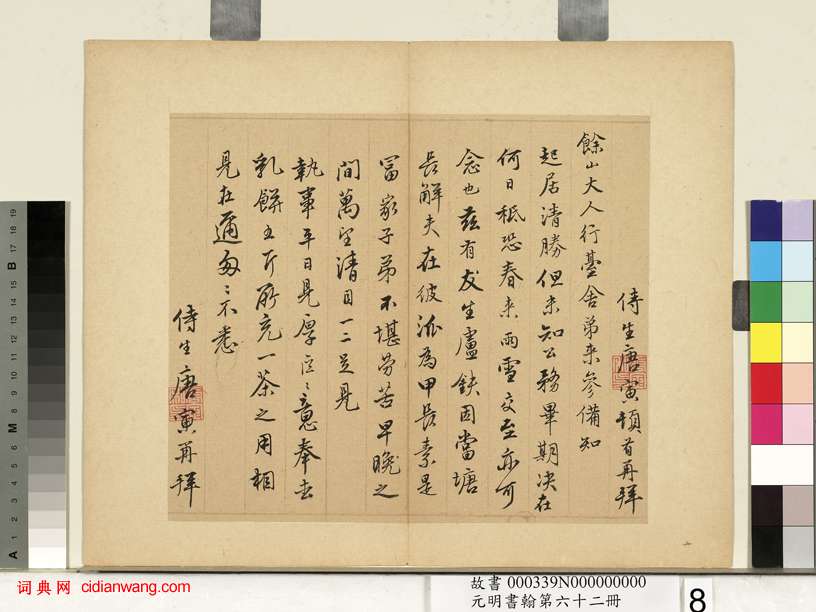 侍生唐寅頓首再拜
餘山大人行臺舍弟來參備知
起居清勝但未知公務畢期决在
何日秪恐春來雨雪交至亦可
念也茲有友生盧鈇因當塘
長解夫在彼派為甲長素是
富家子弟不堪勞苦早晚之
間萬望清目一二足見
執事平日見厚區〻意奉去
乳餅五斤所充一茶之用相
見在邇匆〻不悉
侍生唐寅再拜
詞典网 cidianwang.com
故書 000339N000000000
元明書翰第六十二冊
8
19 18 17 16 15 14 13 12 11 10 9 8 7 6 5 4 3 2 1
B M A